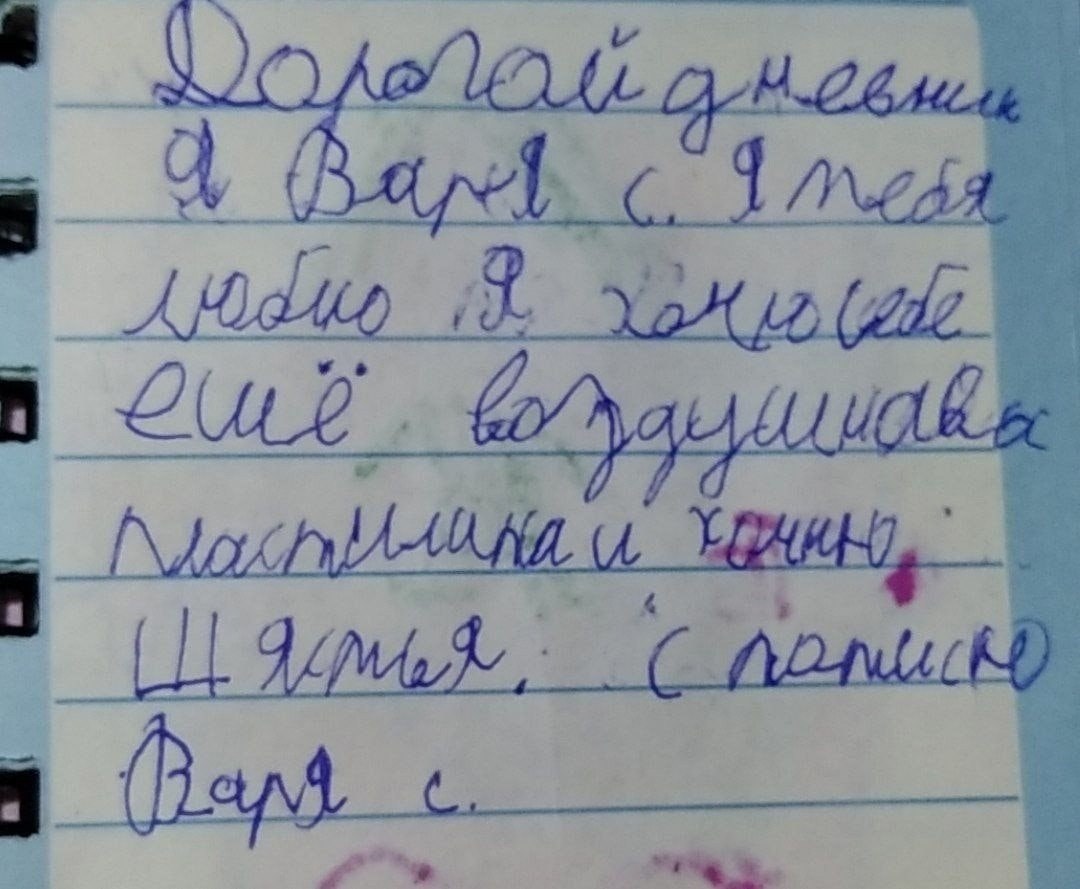 Дорогой дневник
Я Варя с. Я тебя
люблю Я хочу себе
ешё воздушнава
пластилина и хочю
Щястья. С папискю
Варя с.